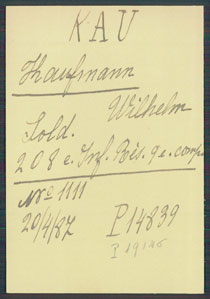 KAU
Kaufmann
Wilhelm
Sold.
208 e. Inf. Rés. 9 e. comp
Nro 1111
20/4/87 P 14839